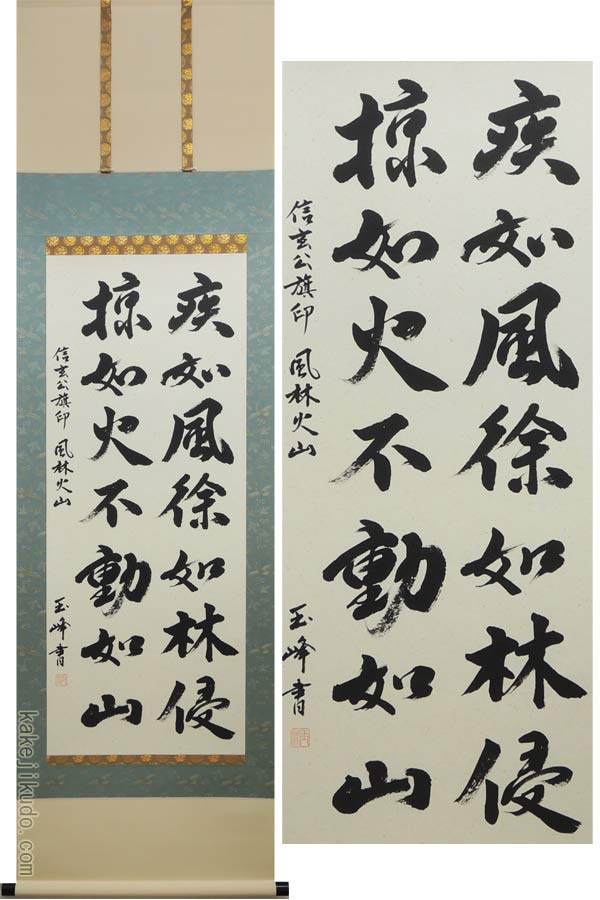 疾如風徐如林侵
掠如火不動如山
信玄公旗印 風林火山
玉峰書
疾如風徐如林侵
掠如火不動如山
信玄公旗印 風林火山
玉峰書
kakejikudo.com